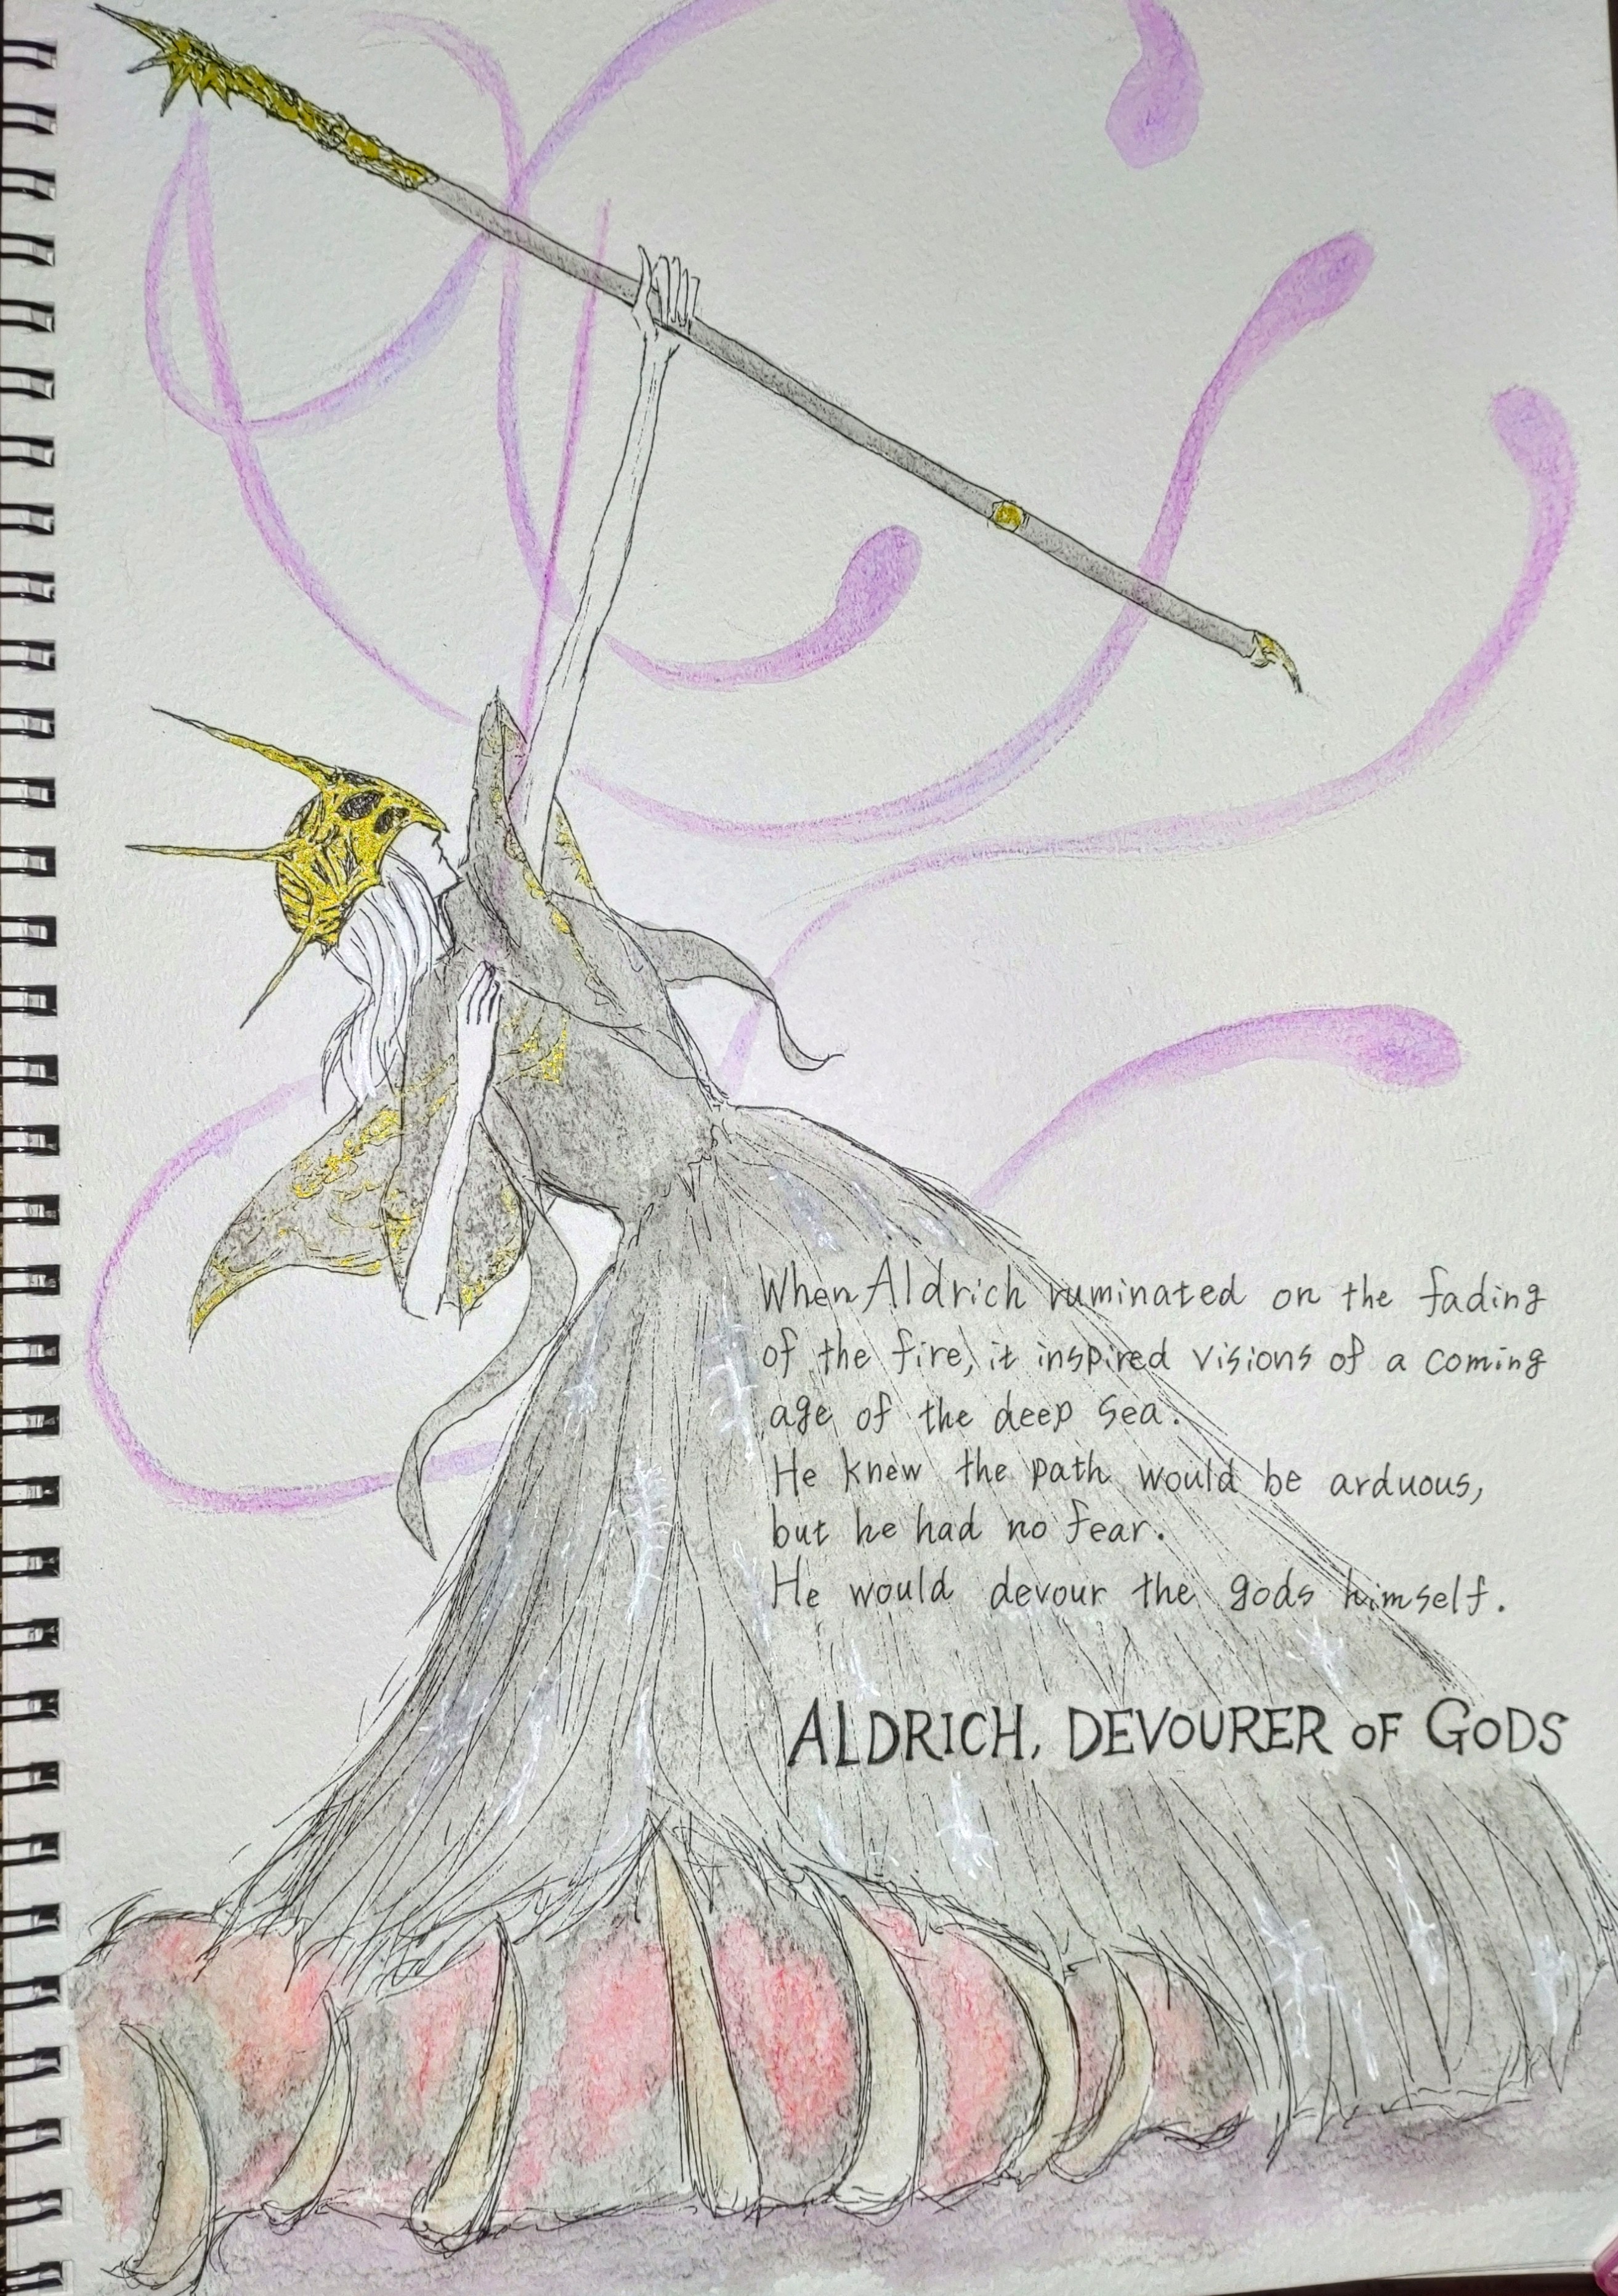 When Aldrich ruminated on the fading
of the fire, it inspired visions of a coming
age of the deep sea.
He knew the path would be arduous,
but he had no fear.
He would devour the gods himself.
ALDRICH, DEVOURER OF GODS